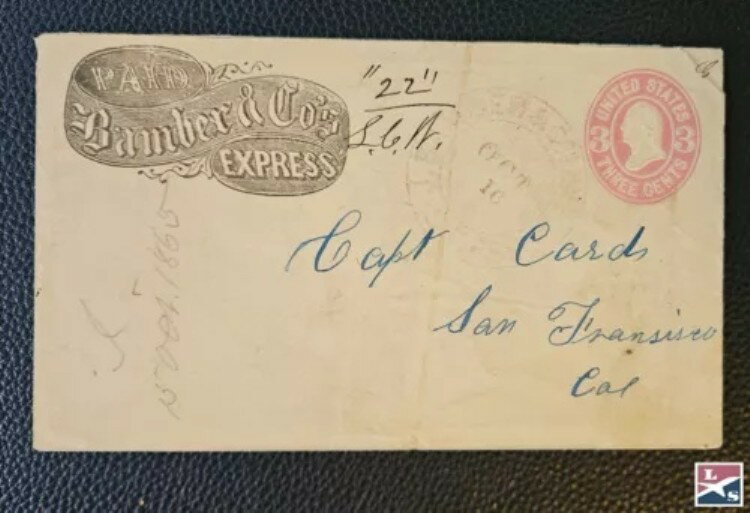 PAID
Bamber & Co's
EXPRESS
"22"
UNITED STATES
3 3
THREE CENTS
OCT
16
Capt Card
San Fransisco
Cal
Oct. 1865
L S